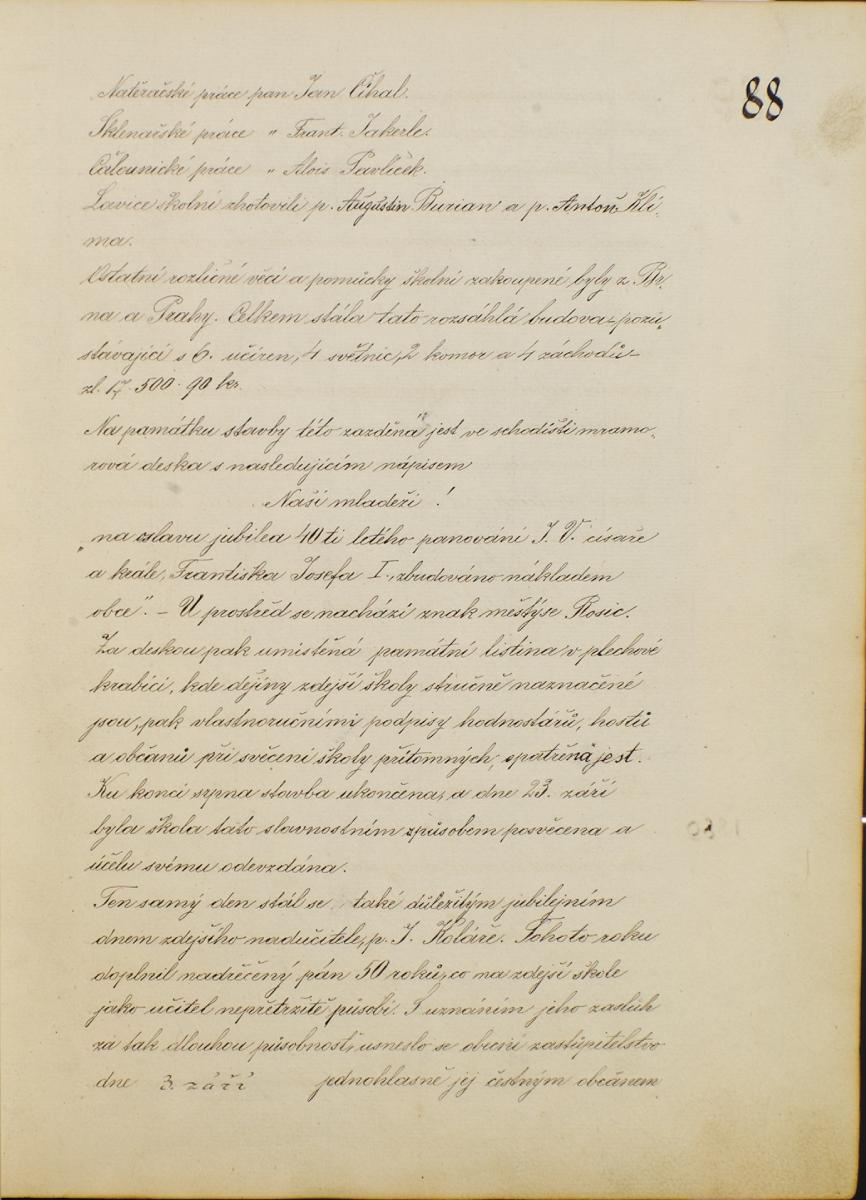 88
Natěračské práce pan Jan Číhal.
Sklenařské práce " Frant. Jakerle.
Čalounické práce " Alois Pavlíček.
Lavice školní zhotovili p. Augustin Burian a p. Antoň Klí-
ma.
Ostatní rozličné věci a pomůcky školní zakoupené byly z Br-
na a Prahy. Celkem stála tato rozsáhlá budova – pozů-
stávající s 6. učíren, 4 světnic, 2 komor a 4 záchodů –
zl. 17.500. 90 kr.
Na památku stavby této zazděná jest ve schodišti mramo-
rová deska s nasledujícím nápisem
Naší mladeži!
„na oslavu jubilea 40ti letého panování J. V. císaře
a krále, Františka Josefa I., zbudováno nákladem
obce". – U prostřed se nachází znak městýse Rosic.
Za deskou pak umístěná památní listina v plechové
krabici, kde dějiny zdejší školy stručně naznačené
jsou, pak vlastnoručními podpisy hodnostářů, hostů
a občanů při svěcení školy přítomných, opatřená jest.
Ku konci srpna stavba ukončena, a dne 23. září
byla škola tato slavnostním způsobem posvěcena a
účelu svému odevzdána.
Ten samý den stál se také důležitým jubilejním
dnem zdejšího nadučitele, p. J. Koláře. Tohoto roku
doplnil nadřečený pán 50 roků, co na zdejší škole
jako učitel nepřetržitě působí. S uznáním jeho zasluh
za tak dlouhou působnost, usneslo se obecní zastupitelstvo
dne 3. září jednohlasně jej čestným občanem